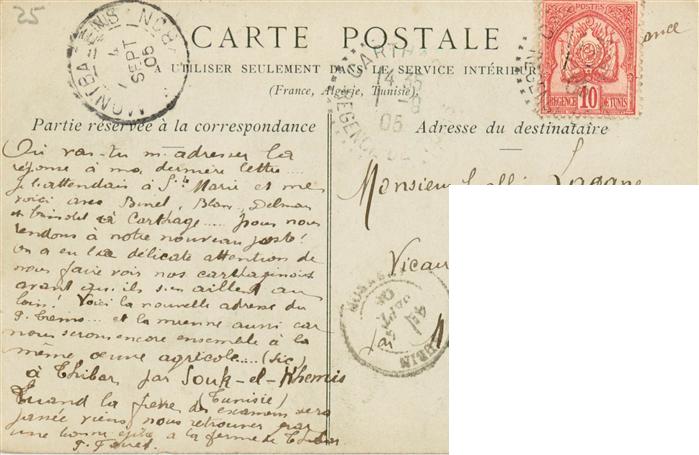 25
CARTE POSTALE
A UTILISER SEULEMENT DANS LE SERVICE INTÉRIEUR
(France, Algérie, Tunisie).
10
REGENCE DE TUNIS
14 35
1 -9
05
4
SEPT
05
Partie réservée à la correspondance
Où vas-tu m'adresser la
réponse à ma dernière lettre....
Je l'attendais à Ste Marie et me
voici avec Binel, Blanc, Delmas
et à Carthage..... pour nous
rendons à notre nouveau poste!
On a eu la délicate attention de
nous faire voir nos carthaginois
avant qu'ils s'en aillent au
loin! Voici la nouvelle adresse du
P. ... et la mienne aussi car
nous serons encore ensemble à la
même œuvre agricole.....(sic)
à Thibar par Souk-el-Khemis
(Tunisie)
Quand la fièvre des examens sera
passée viens nous retrouver par
une bonne à la ferme de Thibar
Adresse du destinataire
Monsieur